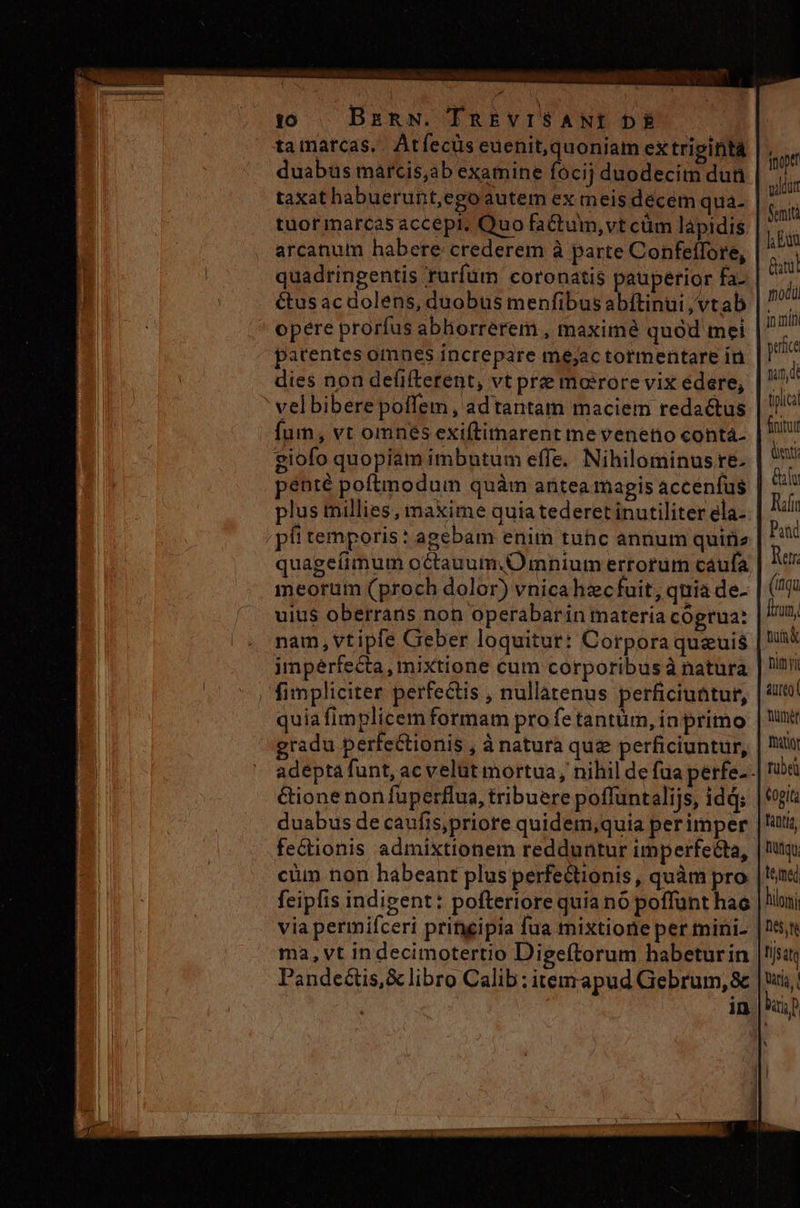 10 BERN. TREVISANI DE
ta marcas. At secùs euenit, quoniam ex triginta
duabus marcis, ab examine socij duodecim dun
taxat habuerunt, ego autem ex meis decem qua-
tuor marcas accepi. Quo factum, vt cùm lapidis
arcanum habere crederem à parte Confessore,
quadringentis rursum coronatis pauperior fa-
ctus ac dolens, duobus mensibus abstinui, vt ab
opere prorsus abhorrerem, maximè quòd mei
parentes omnes increpare me, ac tormentare in
dies non desisterent, vt præ mœrore vix edere,
vel bibere possem, ad tantam maciem redactus
sum, vt omnes existimarent me veneno contá-
gioso quopiam imbutum esse. Nihilominus re-
pentè postmodum quàm antea magis accensus
plus millies, maxime quia tederet inutiliter ela-
psi temporis: agebam enim tunc annum quin-
quagesimum octauum. Omnium errorum causa
meorum (proch dolor) vnica hæc fuit, quia de-
uius oberrans non operabar in materia cógrua:
nam, vt ipse Geber loquitur: Corpora quæuis
imperfecta, mixtione cum corporibus à natura
simpliciter perfectis, nullatenus perficiuntur,
quia simplicem formam pro se tantùm, in primo
gradu perfectionis, à natura quæ perficiuntur,
adepta sunt, ac velut mortua, nihil de sua perfe-
ctione non superflua, tribuere possunt alijs, idq;
duabus de causis, priore quidem, quia per imper
fectionis admixtionem redduntur imperfecta,
cùm non habeant plus perfectionis, quàm pro
seipsis indigent: posteriore quia nó possunt hac
via permisceri principia sua mixtione per mini-
ma, vt in decimotertio Digestorum habetur in
Pandectis, & libro Calib: item apud Gebrum, &
in